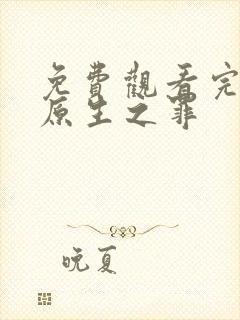 免費觀看完
原生之罪
晚夏